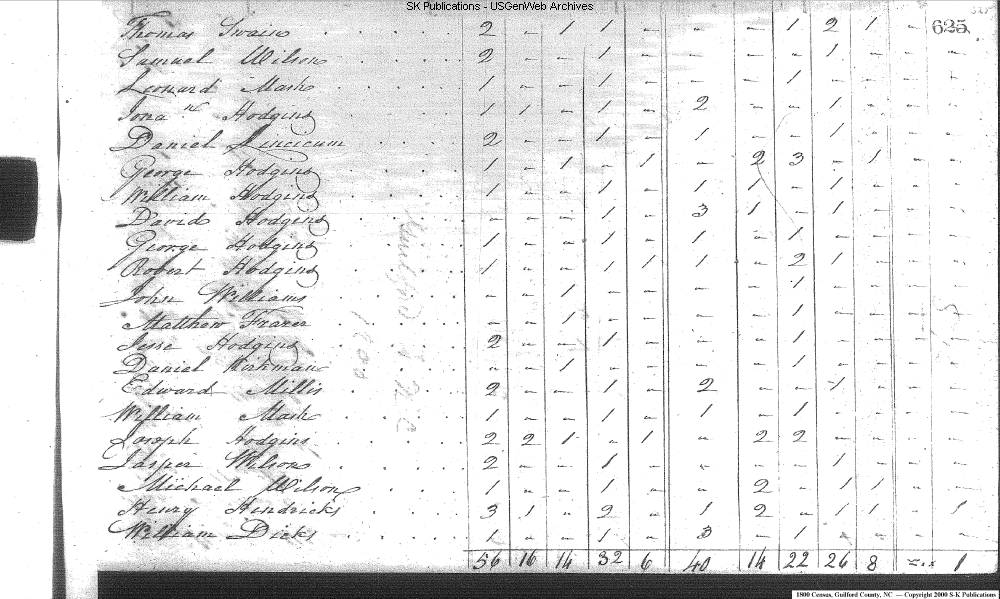 SK Publications - USGenWeb Archives
625
Thomas Swain 2 - 1 1 - - - 1 2 1 -
Samuel Wilson 2 - - 1 - - - - 1 - -
Leonard Mash 1 - - 1 - - - 1 - - -
Jona n Hodgins 1 1 - 1 - 2 - - 1 - -
Daniel Lincicum 2 - - 1 - 1 - - 1 - -
George Hodgins 1 - 1 - 1 - 2 3 - 1 - -
William Hodgins 1 - - 1 - 1 1 - 1 - - -
David Hodgins - - - 1 - 3 1 - 1 - - -
George Hodgins 1 - - 1 - 1 - 1 - - - -
Robert Hodgins 1 - - 1 1 1 - 2 1 - - -
John Williams - - 1 - - - - 1 - - - -
Matthew Frazer - - 1 - - - - 1 - - - -
Jesse Hodgins 2 - - 1 - - - 1 - - - -
Daniel Kirkman - - 1 - - - - 1 - - - -
Edward Millis 2 - - 1 - 2 - - 1 - - -
William Mash 1 - - 1 - 1 - 1 - - - -
Joseph Hodgins 2 2 1 - 1 - 2 2 - - - -
Jasper Wilson 2 - - 1 - - - - 1 - - -
Michael Wilson 1 - - 1 - - 2 - 1 1 - -
Henry Hendricks 3 1 - 2 - 1 2 - 1 1 - 1
William Dicks 1 - - 1 - 3 - 1 - - -
56 16 14 32 6 40 14 22 26 8 1
1800 Census, Guilford County, NC — Copyright 2000 S-K Publications